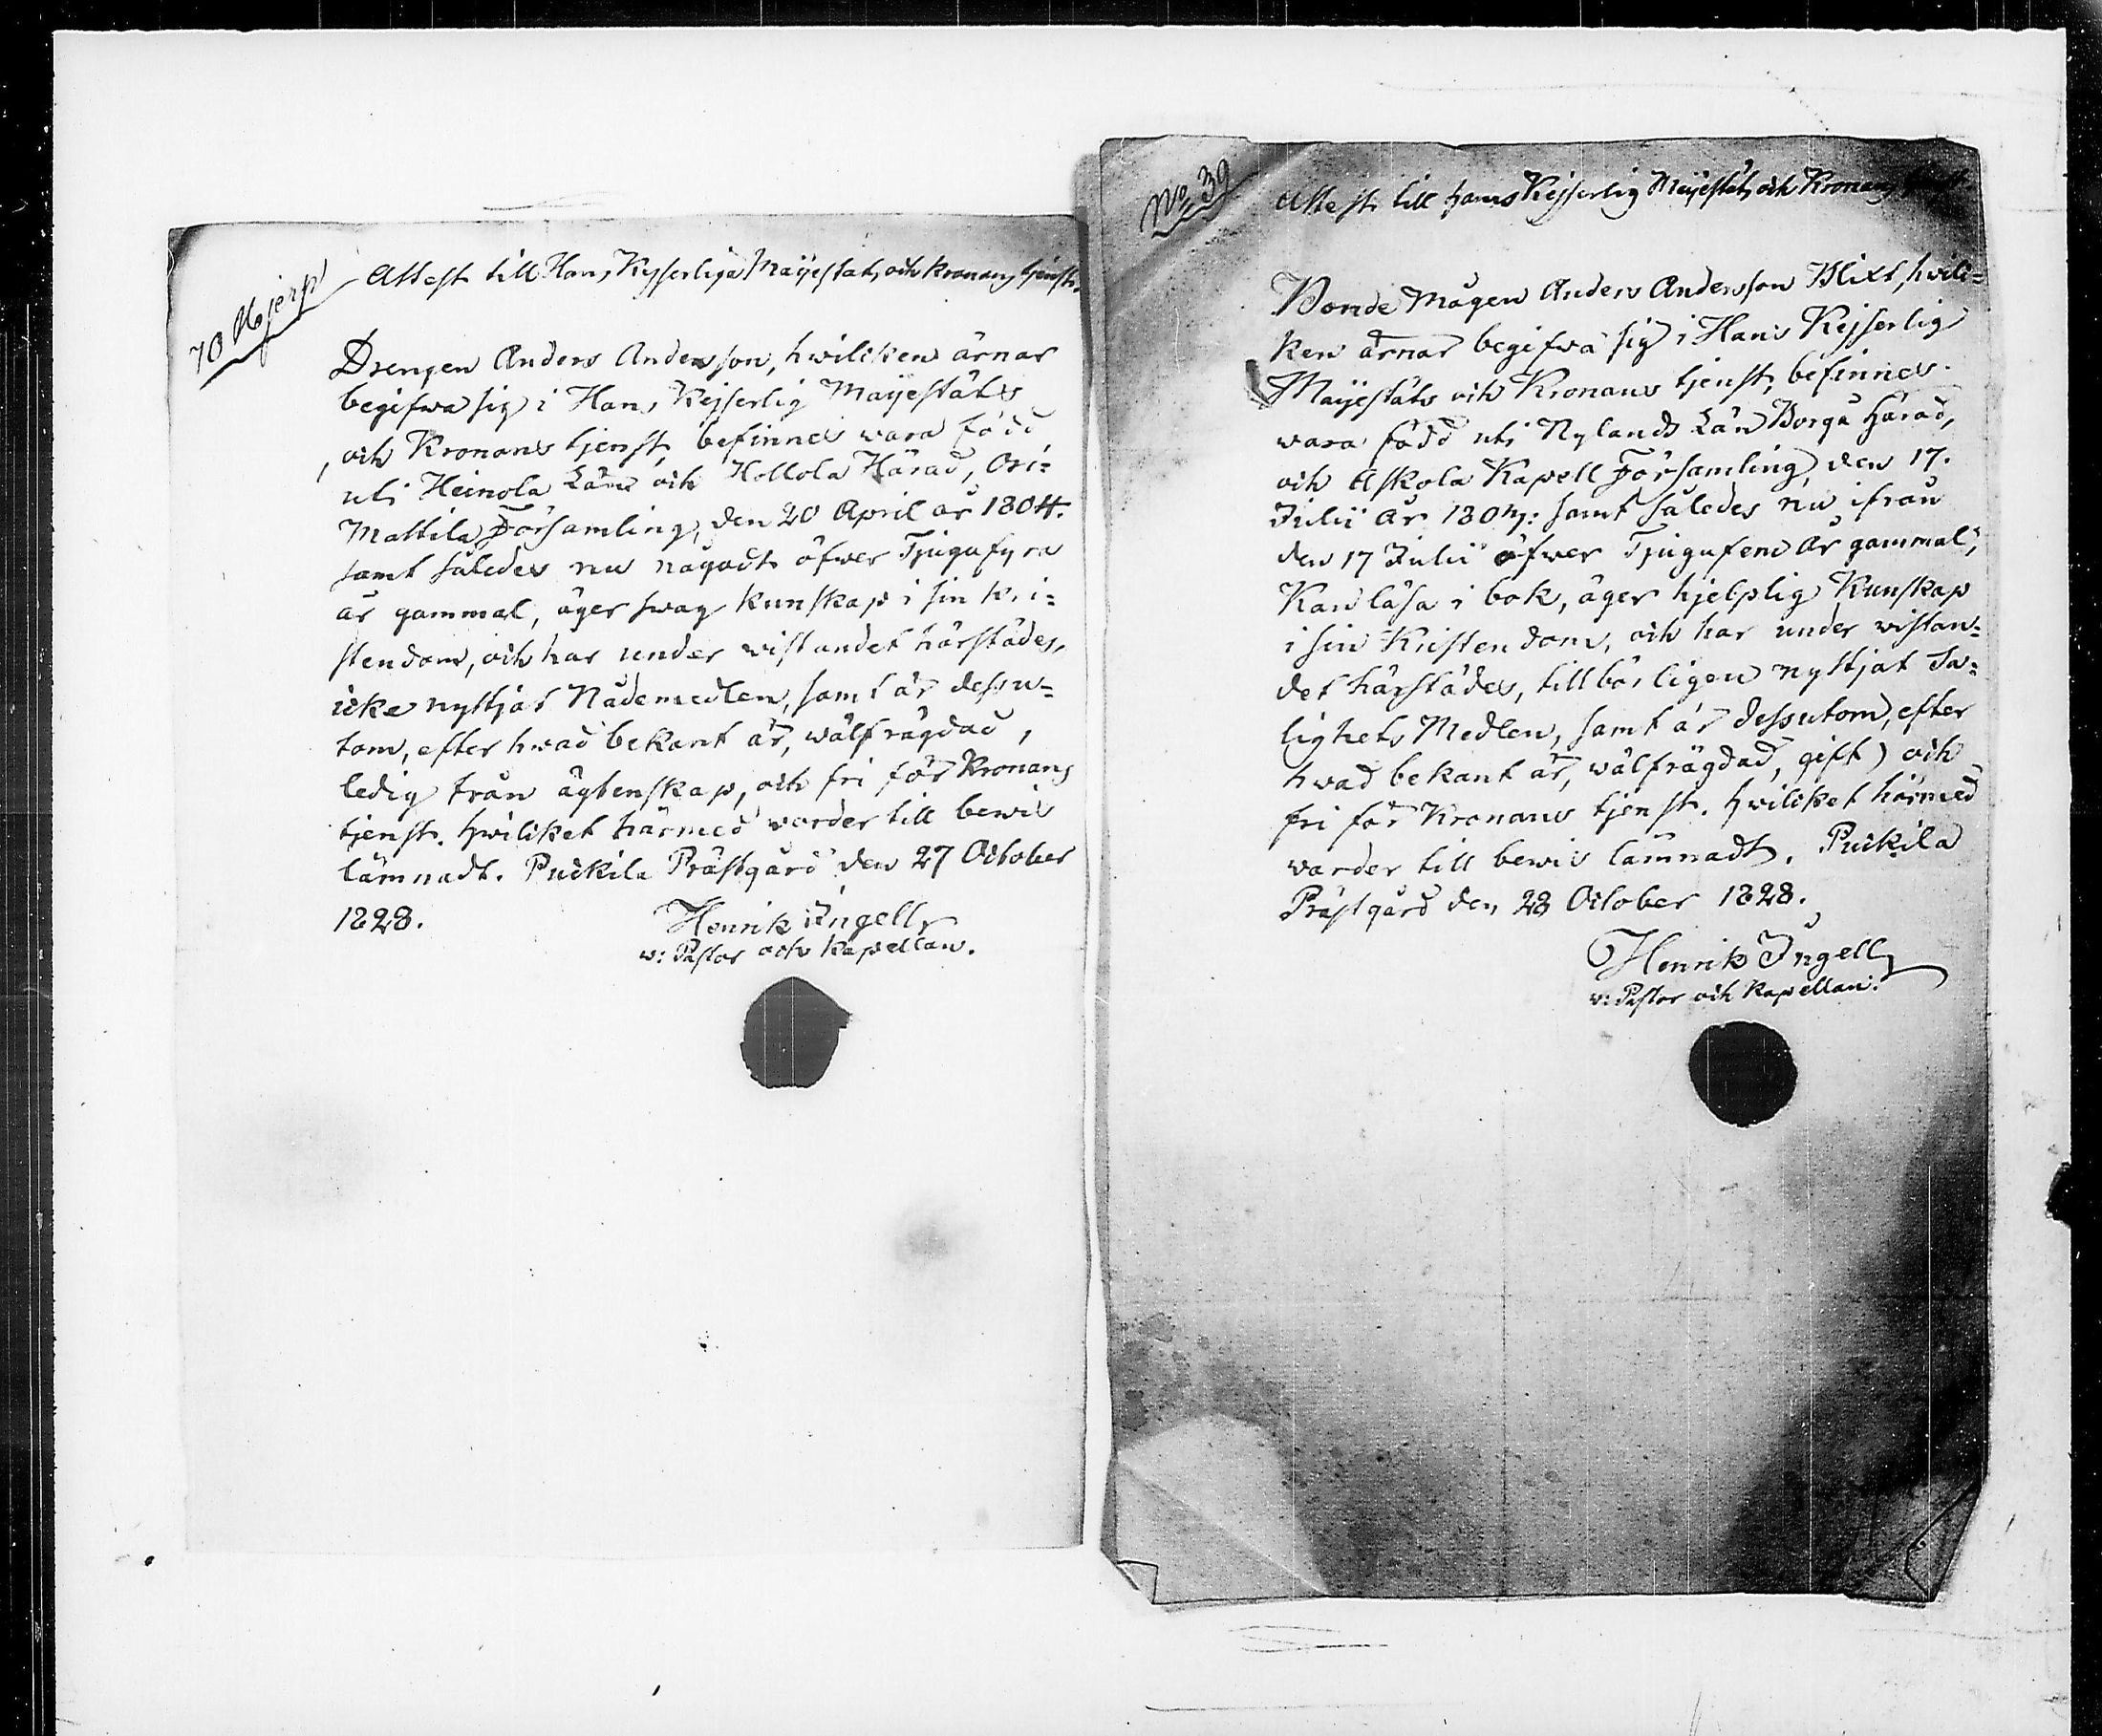 70 Hjerp
Attest till Hans Kejserliga Maijestäts och Kronans tjenst.
Drengen Anders Andersson, hwilcken ärnar
begifwa sig i Hans Kejserlig Maijestäts
och Kronans tjenst, befinnes wara född
uti Heinola Län och Hollola Härad, Ori-
Mattila Församling, den 20 April år 1804.
samt således nu någodt öfwer Tjugufyra
år gammal, äger swag kunskap i sin kri-
stendom, och har under wistandet härstädes,
icke nyttjat Nådemedlen, samt är dessu-
tom, efter hwad bekant är, wälfrägdad,
ledig från ägtenskap, och fri för Kronans
tjenst. Hwilcket härmed warder till bewis
lämnadt. Puckila Prästgård den 27 October
1828.
Henrik Ingell
v: Pastor och Kapellan.
No 39
Attest till Hans Kejserlig Maijestäts och Kronans
Bonde Mågen Anders Andersson Blixt, hwilc-
ken ärnar begifwa sig i Hans Kejserlig
Maijestäts och Kronans tjenst, befinnes
wara född uti Nylands Län Borgå Härad,
och Askola Kapell Församling den 17.
Julii år 1803: samt således nu ifrån
den 17 Julii öfwer Tjugufem år gammal,
Kan läsa i bok, äger hjelplig Kunskap
i sin Kristendom, och har under wistan-
det härstädes, tillbörligen nyttjat Sa-
lighets Medlen, samt är dessutom, efter
hwad bekant är, wälfrägdad, gift) och
fri för Kronans tjenst. Hwilcket härmed
warder till bewis lämnadt. Puckila
Prästgård den 28 October 1828.
Henrik Ingell
v: Pastor och Kapellan.